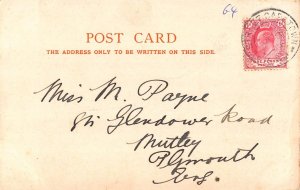 64
POST CARD
THE ADDRESS ONLY TO BE WRITTEN ON THIS SIDE.
Miss M. Payne
Glendower Road
Mutley
Plymouth
Eng.